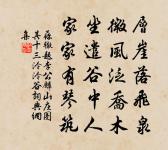 層崖落飛泉
微風泛喬木
坐遣谷中人
家家有琴筑
蘇轍題李公麟山莊圖
其十三泠泠谷詞典網
集